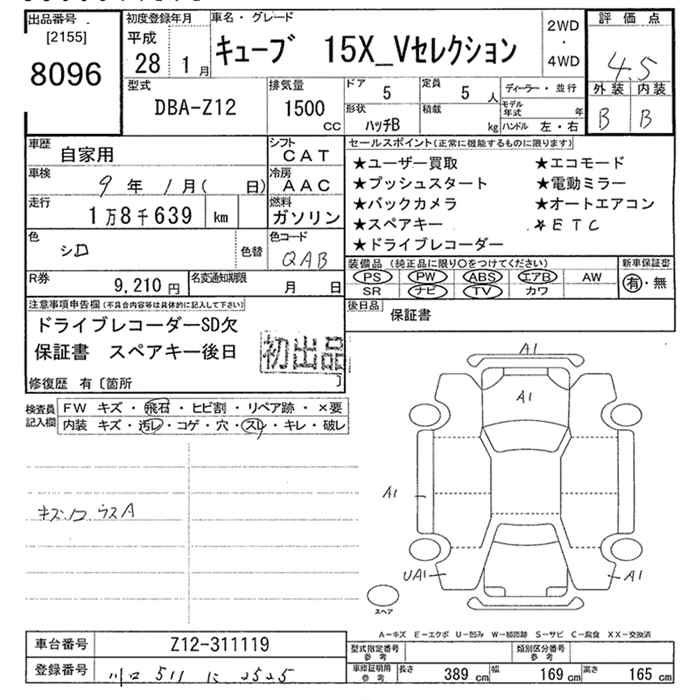 出品番号
[2155]
8096
初度登録年月
平成
28 1月
車名・グレード
キューブ 15X_Vセレクション
2WD
・
4WD
評価点
4.5
外装 内装
B B
型式
DBA-Z12
排気量
1500
CC
ドア
5
定員
5 人
形状
ハッチB
積載
kg
ディーラー・並行
モデル年式 年
ハンドル 左・右
車歴
自家用
シフト
CAT
車検
9年 1月( 日)
冷房
AAC
走行
1万8千639 km
燃料
ガソリン
色
シロ
色替
色コード
QAB
R券
9,210 円
名変通知期限
月 日
セールスポイント(正常に機能するものに限ります)
★ユーザー買取 ★エコモード
★プッシュスタート ★電動ミラー
★バックカメラ ★オートエアコン
★スペアキー ★ETC
★ドライブレコーダー
装備品(純正品に限り○をつけてください)
PS PW ABS エアB AW
SR ナビ TV カワ
新車保証書
有・無
後日品
保証書
注意事項申告欄(不具合内容等は具体的に記入して下さい)
ドライブレコーダーSD欠
保証書 スペアキー後日
初出品
修復歴 有〔箇所 〕
検査員記入欄
FW キズ・飛石・ヒビ割・リペア跡・×要
内装 キズ・汚レ・コゲ・穴・スレ・キレ・破レ
A1
A1
A1
UA1
A1
スペア
A-キズ E-エクボ U-凹み W-補修跡 S-サビ C-腐食 XX-交換済
車台番号
Z12-311119
登録番号
川口 511 に 2525
型式指定番号
参考
類別区分番号
参考
車検証明用
参考
長さ 389 cm 幅 169 cm 高さ 165 cm